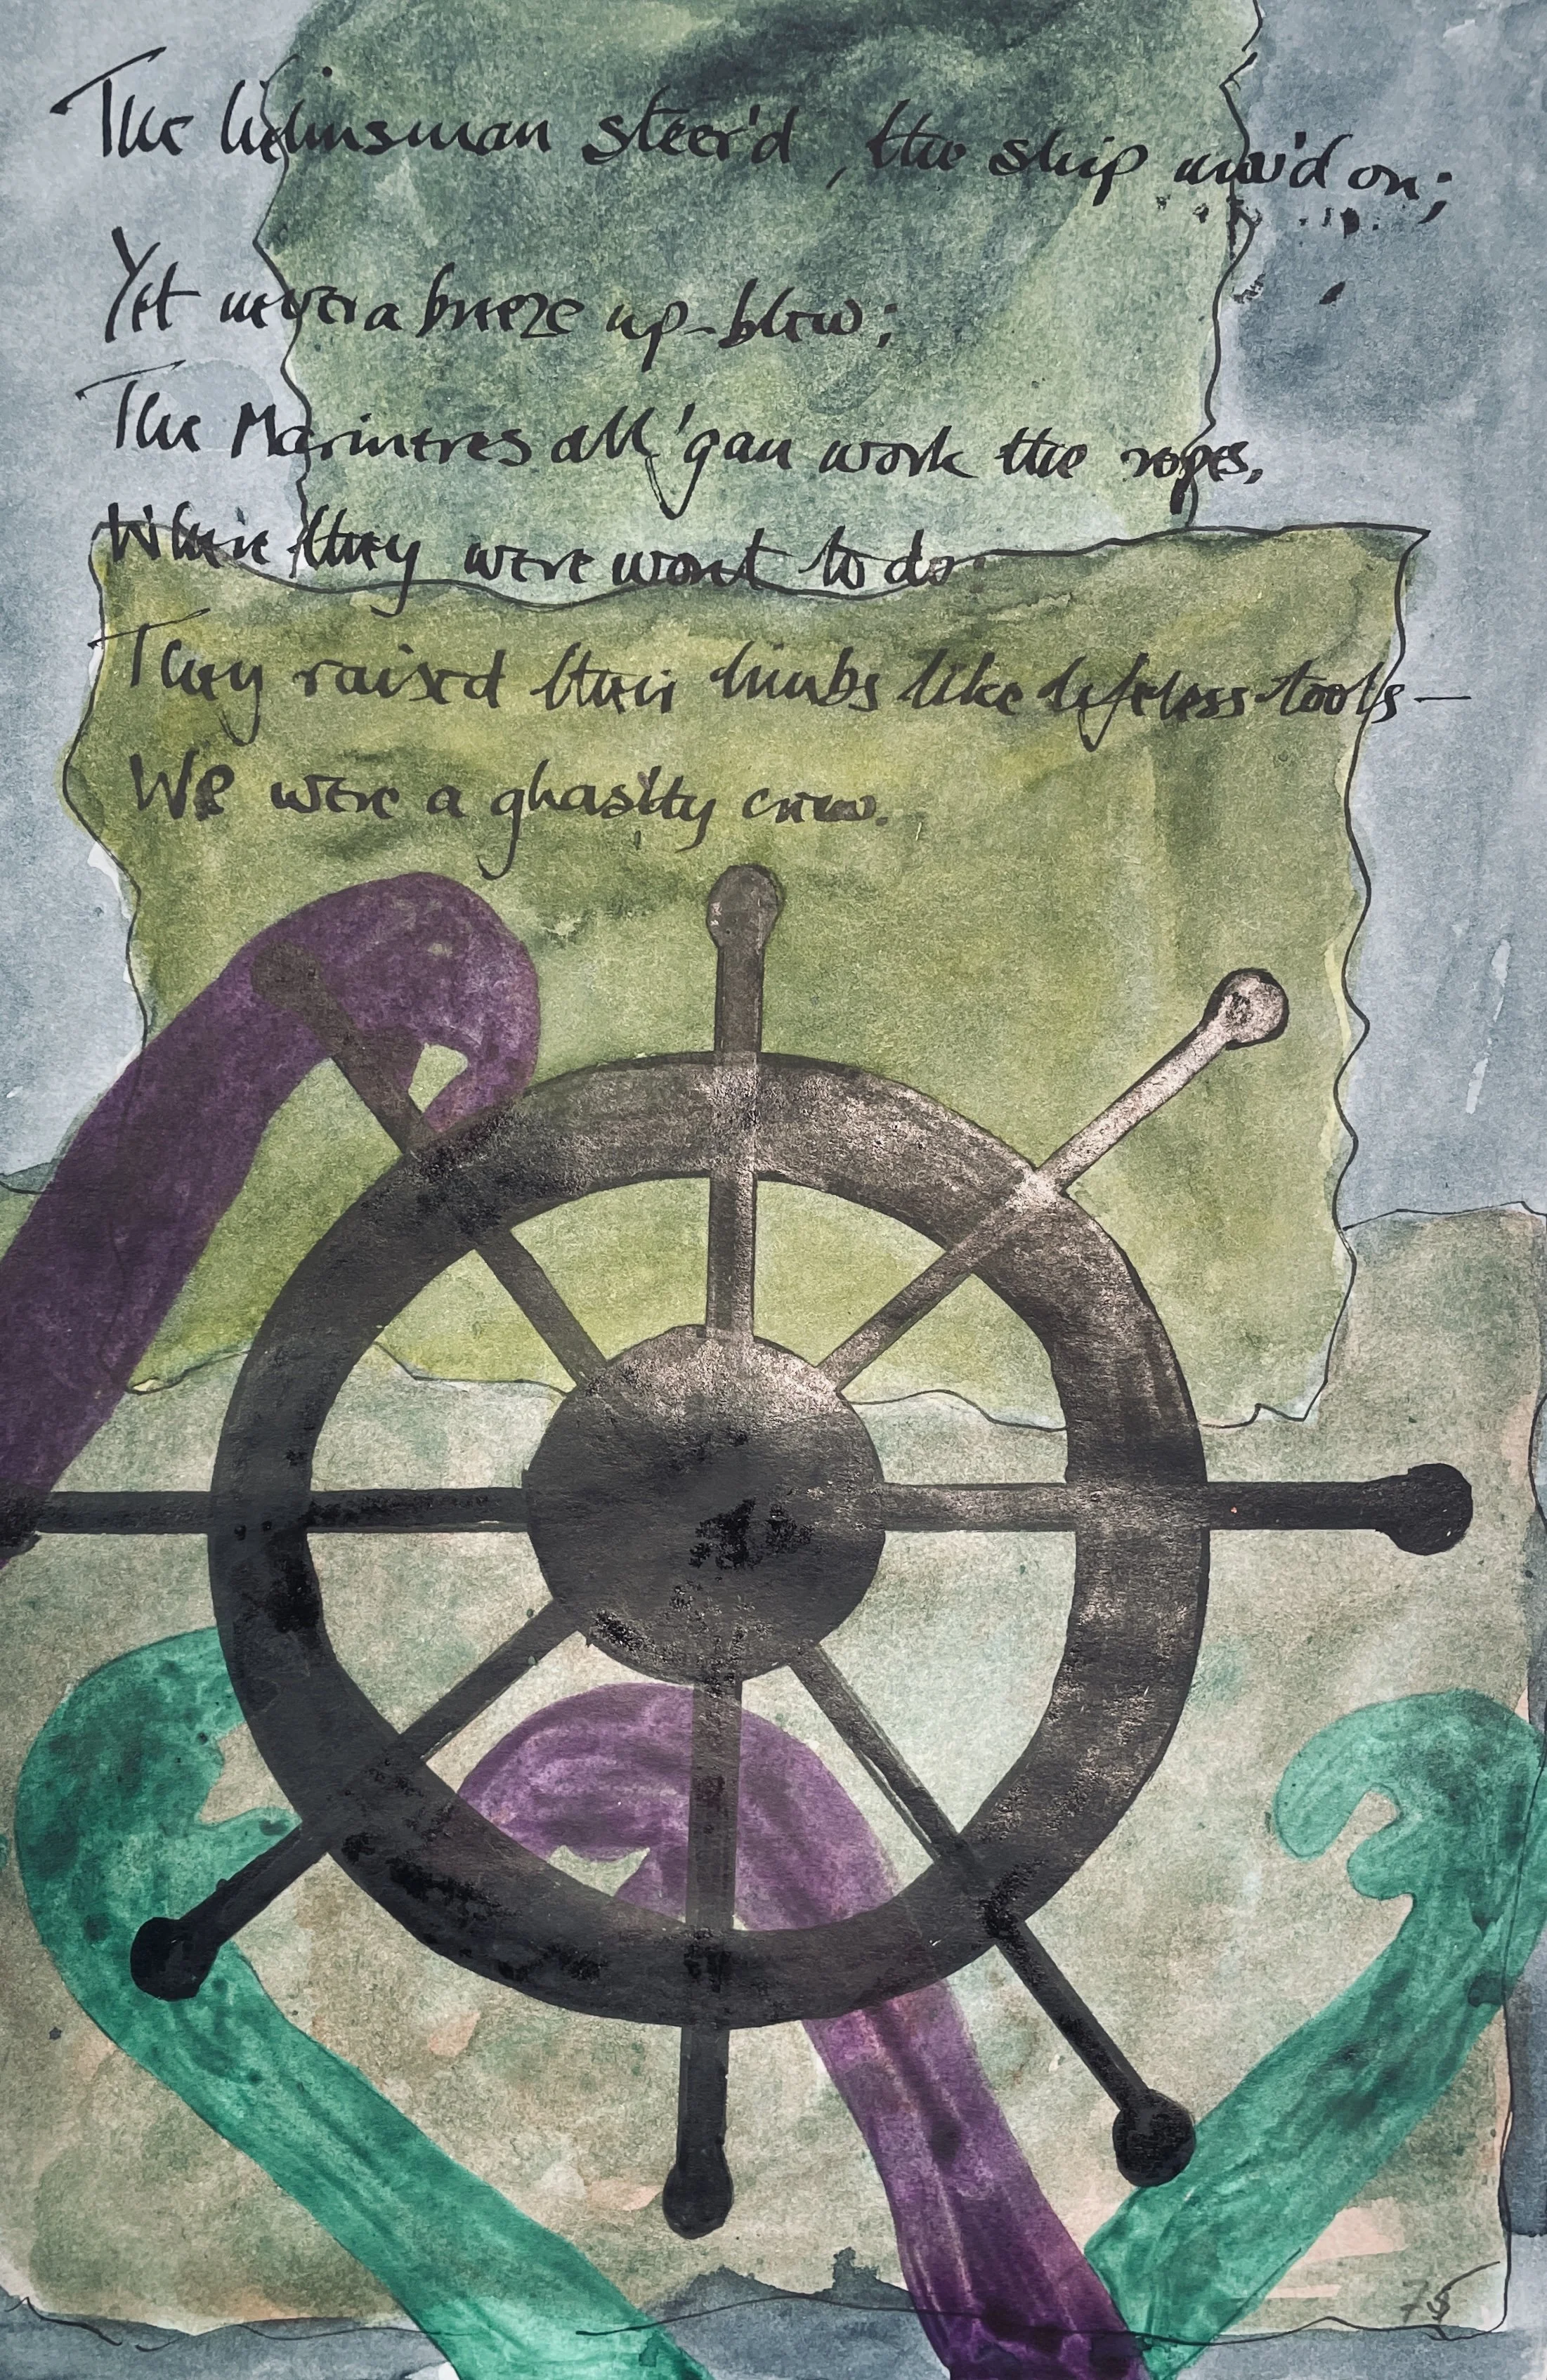 The helmsman steer'd, the ship mov'd on;
Yet never a breeze up-blew;
The Marineres all 'gan work the ropes,
Where they were wont to do:
They raised their limbs like lifeless tools—
We were a ghastly crew.
75